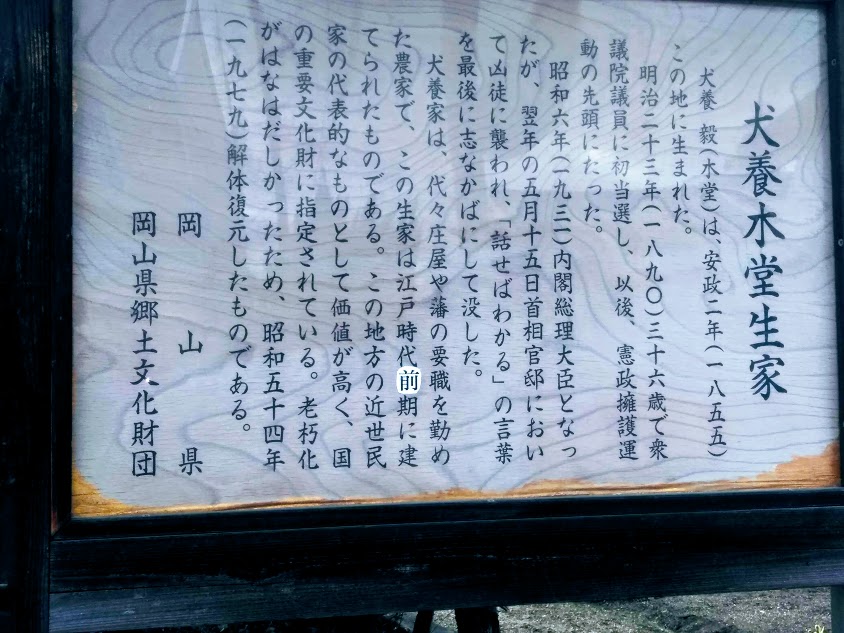 犬養木堂生家
犬養 毅(木堂)は、安政二年(一八五五)
この地に生まれた。
明治二十三年(一八九〇)三十六歳で衆
議院議員に初当選し、以後、憲政擁護運
動の先頭にたった。
昭和六年(一九三一)内閣総理大臣となっ
たが、翌年の五月十五日首相官邸におい
て凶徒に襲われ、「話せばわかる」の言葉
を最後に志なかばにして没した。
犬養家は、代々庄屋や藩の要職を勤め
た農家で、この生家は江戸時代前期に建
てられたものである。この地方の近世民
家の代表的なものとして価値が高く、国
の重要文化財に指定されている。老朽化
がはなはだしかったため、昭和五十四年
(一九七九)解体復元したものである。
岡山県
岡山県郷土文化財団